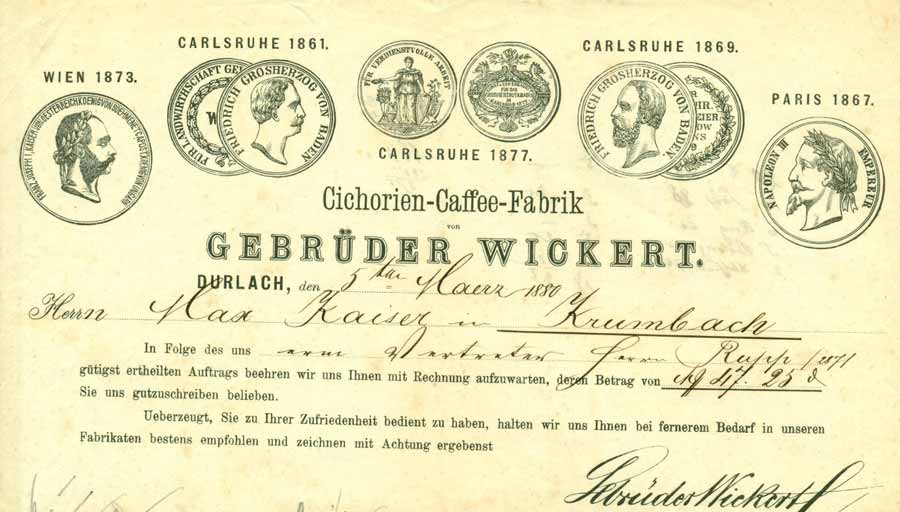 CARLSRUHE 1861.
CARLSRUHE 1869.
WIEN 1873.
PARIS 1867.
CARLSRUHE 1877.
FÜR LANDWIRTHSCHAFT
FRIEDRICH GROSHERZOG VON BADEN
FÜR VERDIENSTVOLLE ARBEIT
FRIEDRICH GROSHERZOG VON BADEN
NAPOLEON III EMPEREUR
Cichorien-Caffee-Fabrik
von
GEBRÜDER WICKERT.
DURLACH, den 5ten Maerz 1880
Herrn Max Kaiser in Krumbach
In Folge des uns Vertreter Herrn Rupp
gütigst ertheilten Auftrags beehren wir uns Ihnen mit Rechnung aufzuwarten, deren Betrag von 47. 25
Sie uns gutzuschreiben belieben.
Ueberzeugt, Sie zu Ihrer Zufriedenheit bedient zu haben, halten wir uns Ihnen bei fernerem Bedarf in unseren
Fabrikaten bestens empfohlen und zeichnen mit Achtung ergebenst
Gebrüder Wickert